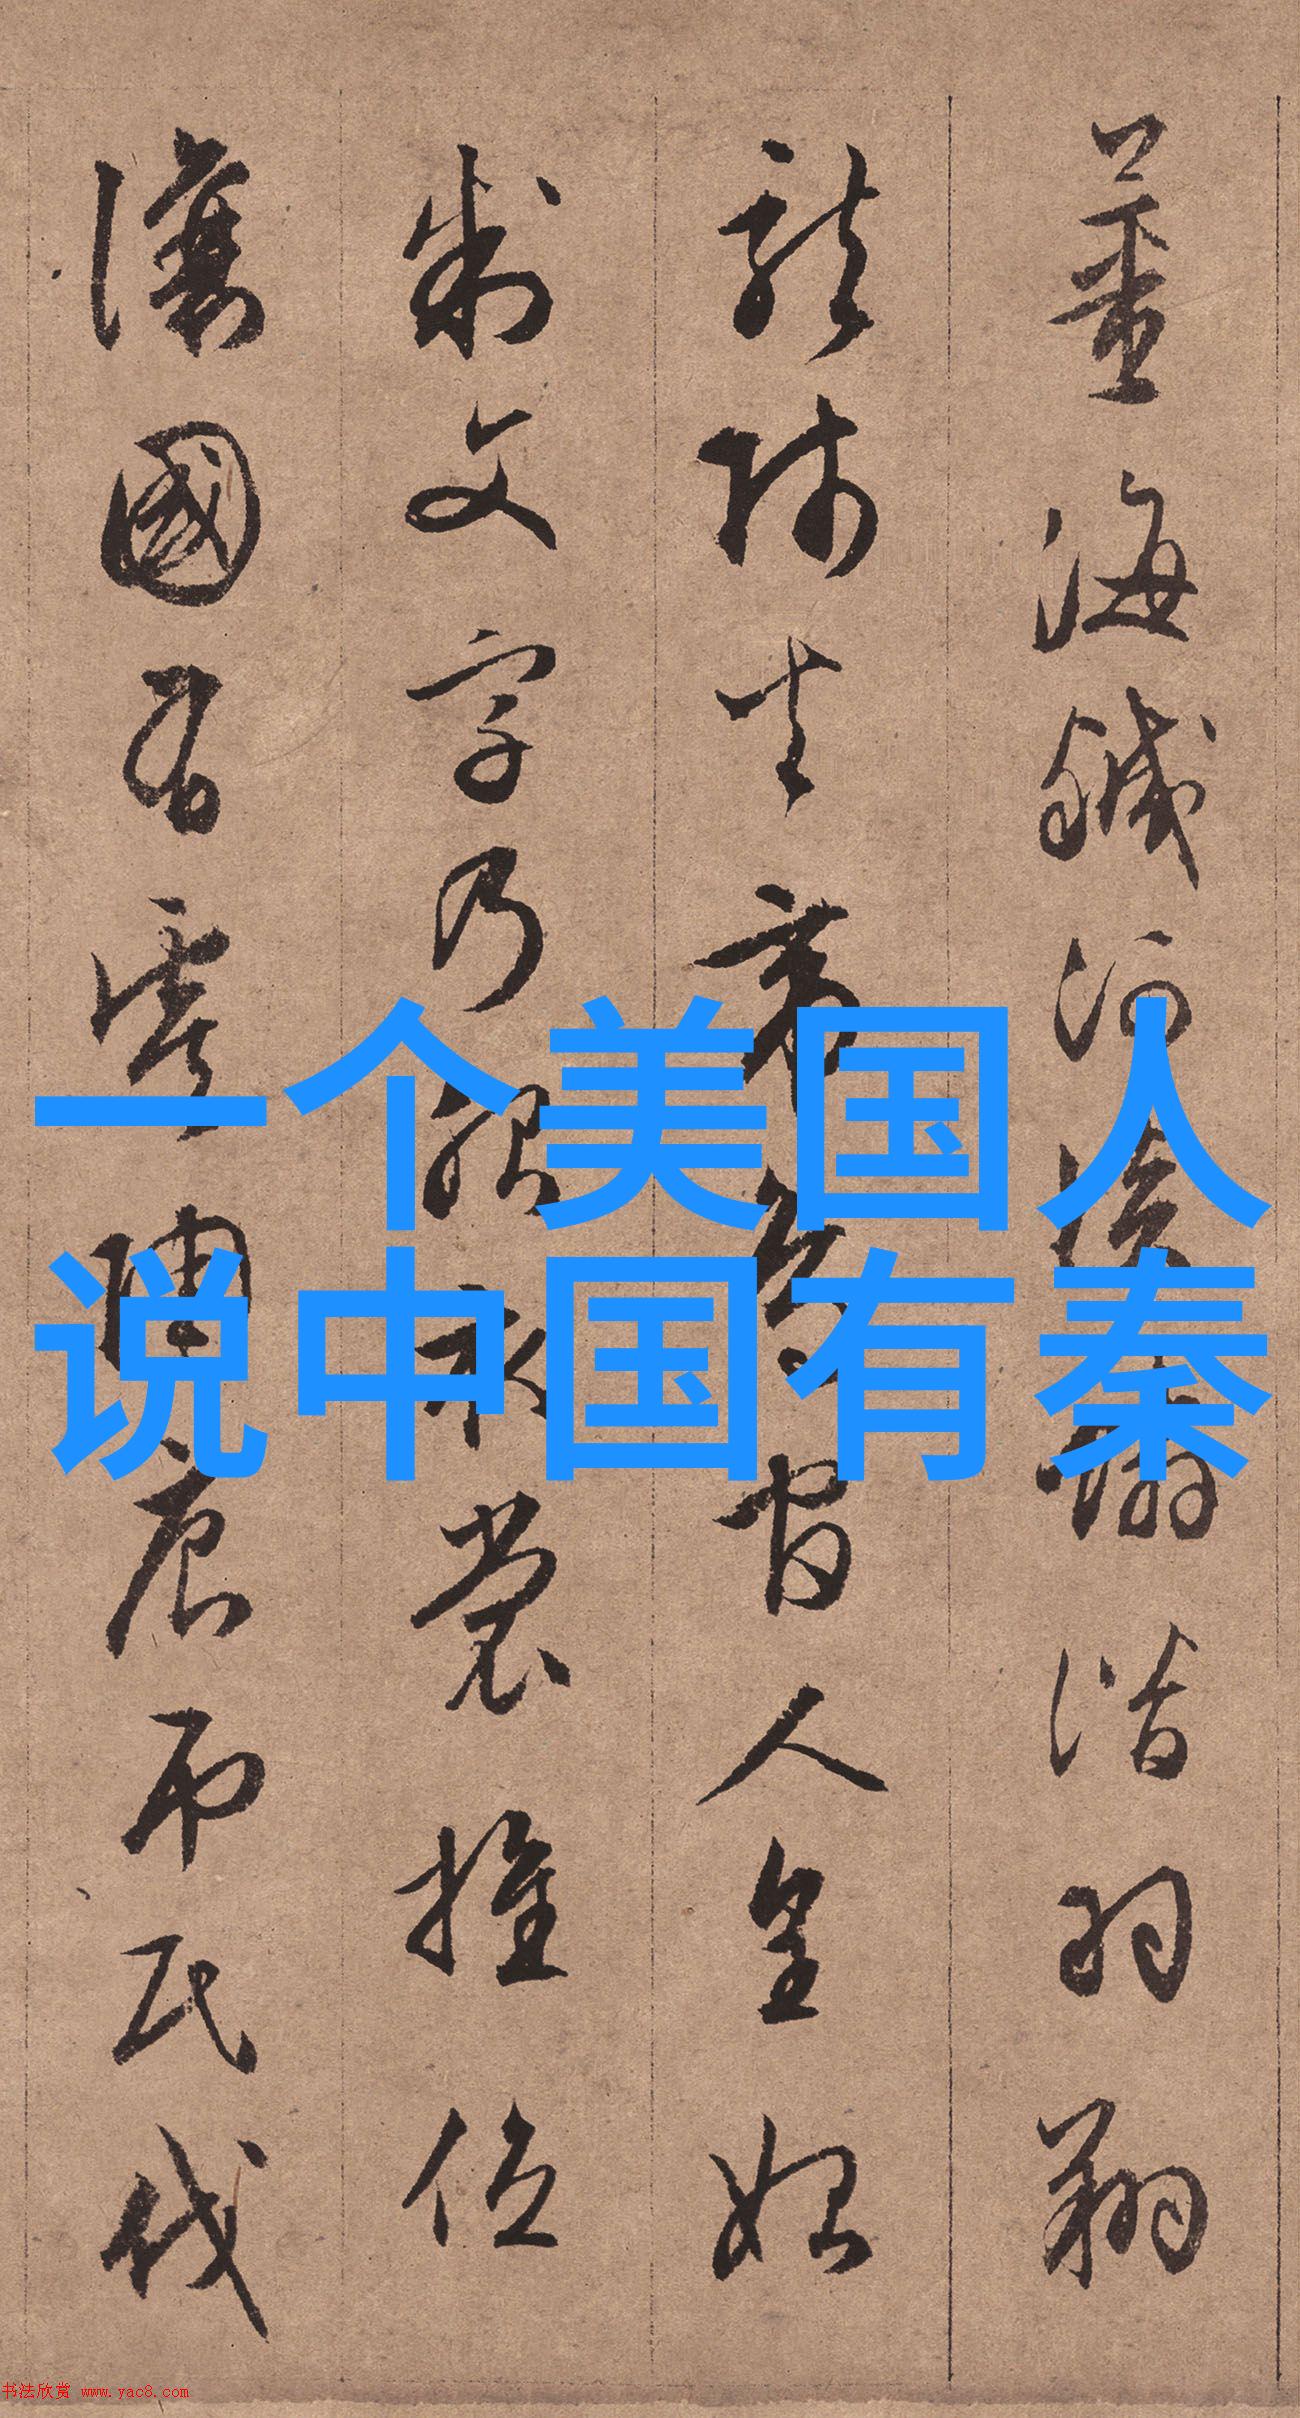 薑海鹹河淡鱗潛羽翔
龍師火帝鳥官人皇始
制文字乃服衣裳推位
讓國有虞陶唐弔民伐
一个美国人
说中国有秦
书法欣赏 www.yac8.com